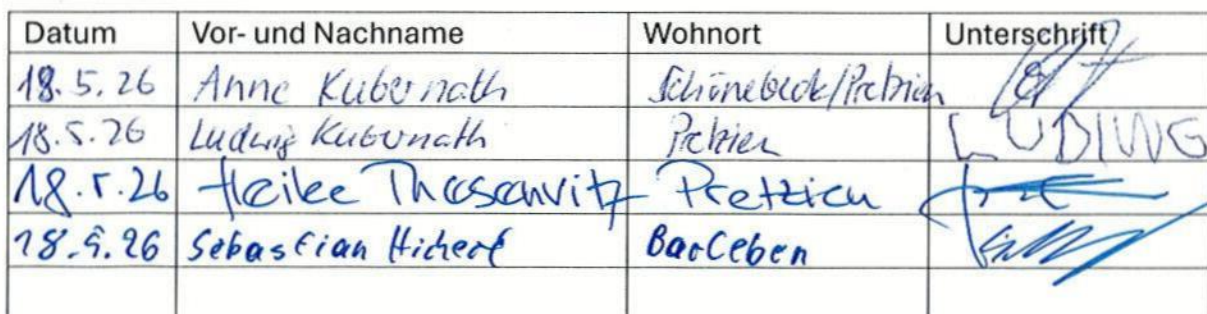 Datum Vor- und Nachname Wohnort Unterschrift
18.5.26 Anne Kubernath Schönebeck/Pretzien
18.5.26 Ludwig Kubernath Pretzien LUDIWG
18.5.26 Heike Pretzien
18.5.26 Sebastian Barleben